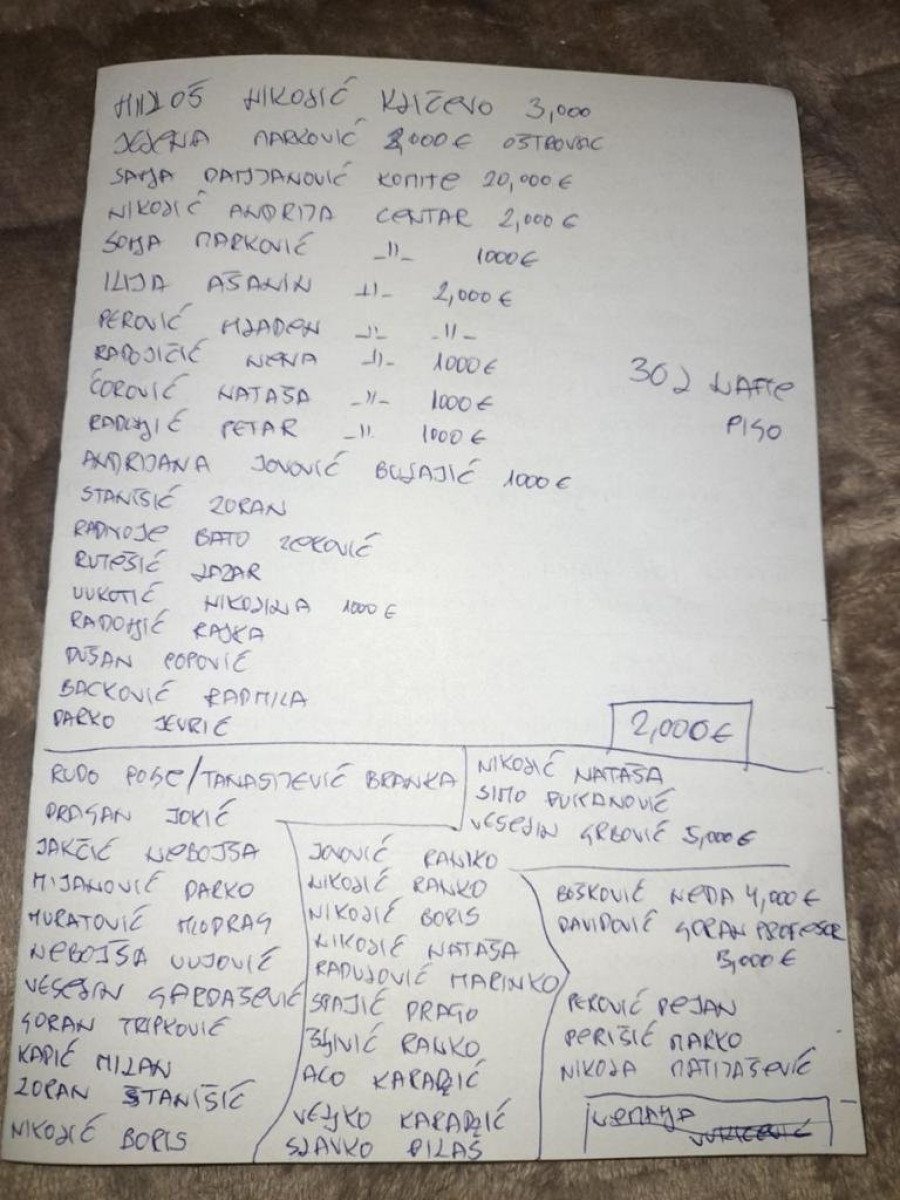 MILOŠ NIKOLIĆ KLIČEVO 3,000
JELENA MARKOVIĆ 2,000 € OSTROVAC
SANJA DAMJANOVIĆ KOMITE 20,000 €
NIKOLIĆ ANDRIJA CENTAR 2,000 €
SONJA MARKOVIĆ -||- 1000 €
ILIJA AŠANIN -||- 2,000 €
PEROVIĆ MLADEN -||- -||-
RADOJIČIĆ NENA -||- 1000 €
ĆOROVIĆ NATAŠA -||- 1000 €
RADONJIĆ PETAR -||- 1000 €
30 L NAFTE
PIGO
ANDRIJANA JOVOVIĆ BULAJIĆ 1000 €
STANIŠIĆ ZORAN
RADNOJE BATO ZEKOVIĆ
RUTEŠIĆ LAZAR
VUKOTIĆ NIKOLINA 1000 €
RADONJIĆ RAJKA
DUŠAN POPOVIĆ
BACKOVIĆ RADMILA
DARKO JEVRIĆ
2,000 €
RUDO POLJE/TANASIJEVIĆ BRANKA
DRAGAN JOKIĆ
JAKČIĆ NEBOJŠA
MIJANOVIĆ DARKO
MURATOVIĆ MIODRAG
NEBOJŠA VUJOVIĆ
VESELIN GARDAŠEVIĆ
GORAN TRIPKOVIĆ
KAPIĆ MILAN
ZORAN STANIŠIĆ
NIKOLIĆ BORIS
JOVOVIĆ RANKO
NIKOLIĆ RANKO
NIKOLIĆ BORIS
NIKOLIĆ NATAŠA
RADULOVIĆ MARINKO
SPAJIĆ DRAGO
RANKO
ACO KARADŽIĆ
VELJKO KARADŽIĆ
SLAVKO PILAŠ
NIKOLIĆ NATAŠA
SIMO
VESELIN GRBOVIĆ 5,000 €
BOŠKOVIĆ NEDA 4,000 €
DAVIDOVIĆ GORAN PROFESOR
3,000 €
PEROVIĆ DEJAN
PERIŠIĆ MARKO
NIKOLA MATIJAŠEVIĆ